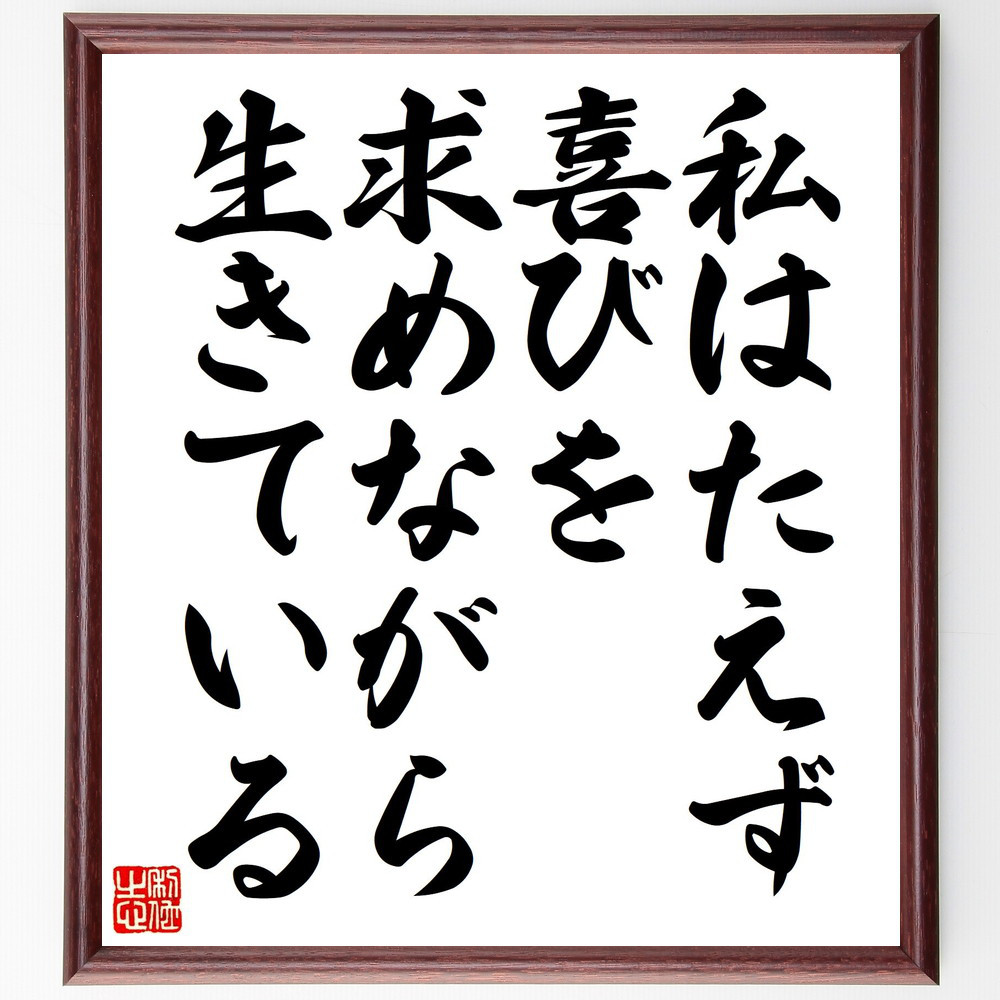 私はたえず
喜びを
求めながら
生きている